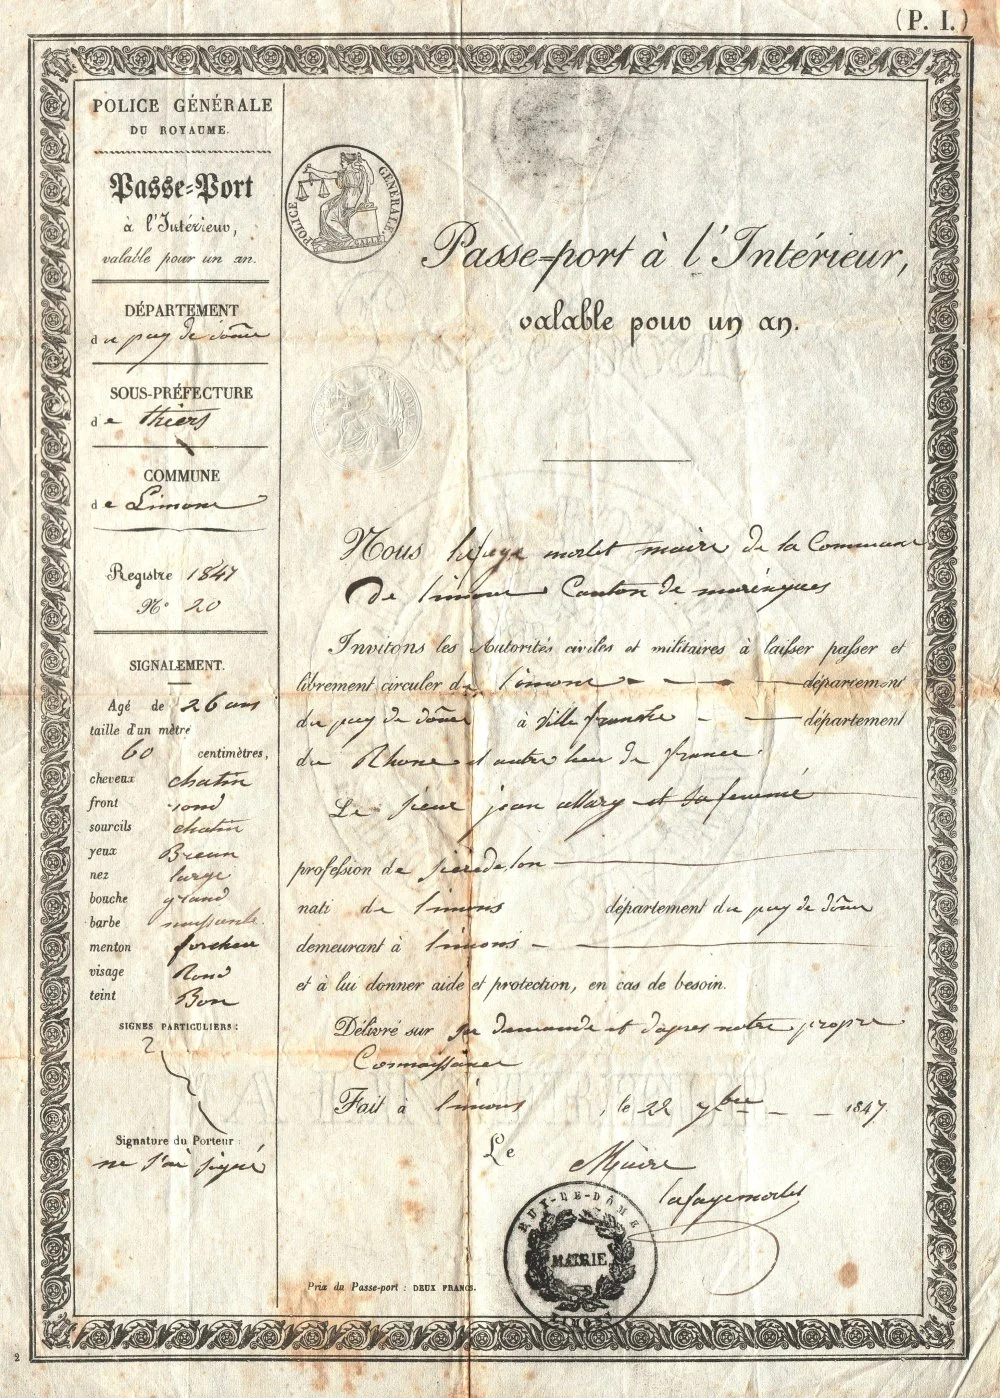 (P. I.)
POLICE GÉNÉRALE
DU ROYAUME.
Passe=Port
à l'Intérieur,
valable pour un an.
DÉPARTEMENT
du puy de dôme
SOUS-PRÉFECTURE
de thiers
COMMUNE
de Limons
Registre 1847
N° 20
SIGNALEMENT.
Agé de 26 ans
taille d'un mètre
60 centimètres,
cheveux chatin
front rond
sourcils chatin
yeux Breun
nez large
bouche grand
barbe naissante
menton forcheu
visage Rond
teint Bon
SIGNES PARTICULIERS :
Signature du Porteur :
ne s'ai signé
POLICE GÉNÉRALE.
Passe=port à l'Intérieur,
valable pour un an.
Nous lafaye morlet maire de la Commune
De limons Canton de maréngues
Invitons les Autorités civiles et militaires à laisser passer et
librement circuler de limons département
du puy de dôme à ville franche département
du Rhone et autre lieu de france.
Le sieur jean allary et sa femme
profession de
nati de limons département du puy de dôme
demeurant à limons
et à lui donner aide et protection, en cas de besoin.
Délivré sur sa demande et dapres notre propre
Connaissance
Fait à limons, le 22 7bre 1847.
Le Maire
lafayemorlet
PUY-DE-DÔME
MAIRIE
LIMONS
Prix du Passe-port : DEUX FRANCS.
2